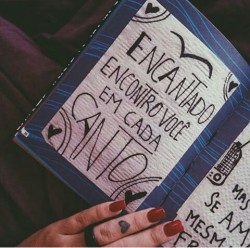 ENCANTADO
ENCONTRO VOCÊ
EM CADA
CANTO
MAS
SE AN
MESM